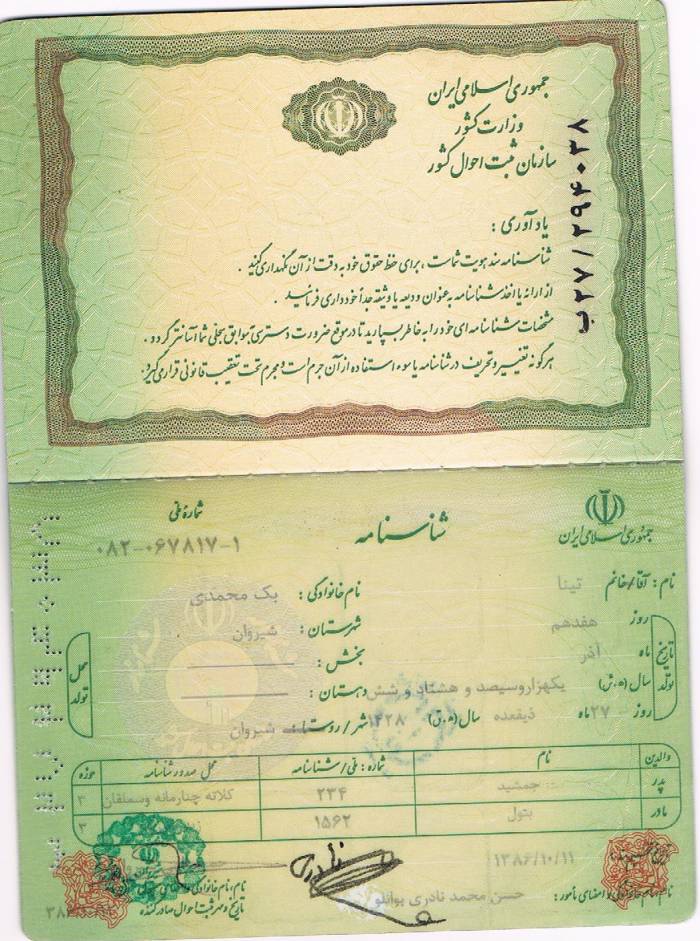 جمهوری اسلامی ایران
وزارت کشور
سازمان ثبت احوال کشور
ب۲۷/۲۹۴۰۳۸
یادآوری :
شناسنامه سند هویت شماست ، برای حفظ حقوق خود به دقت از آن نگهداری کنید .
از ارائه یا اخذ شناسنامه به عنوان ودیعه یا وثیقه جداً خودداری فرمائید .
مشخصات شناسنامه ای خود را به خاطر بسپارید تا در موقع ضرورت دسترسی به سوابق سجلی شما آسانتر گردد .
هرگونه تغییر و تحریف در شناسنامه یا سوء استفاده از آن جرم است و مجرم تحت تعقیب قانونی قرار می گیرد .
جمهوری اسلامی ایران
شناسنامه
شماره ملی
۰۸۲-۰۶۷۸۱۷-۱
نام : آقا/خانم تینا
نام خانوادگی : بک محمدی
تاریخ تولد
روز هفدهم
ماه آذر
سال (ه.ش) یکهزاروسیصد و هشتاد و شش
روز ۲۷ ماه ذیقعده سال (ه.ق) ۱۴۲۸
محل تولد
شهرستان : شیروان
بخش :
دهستان :
شهر / روستا : شیروان
والدین نام شماره : ملی / شناسنامه محل صدور شناسنامه حوزه
پدر جمشید ۲۳۴ کلاته چنارمانه وسملقان ۲
مادر بتول ۱۵۶۲ ۳
۱۳۸۶/۱۰/۱۱
نام ، نام خانوادگی و امضای مأمور : حسن محمد نادری پوانلو
تاریخ و مهر ثبت احوال صادر کننده